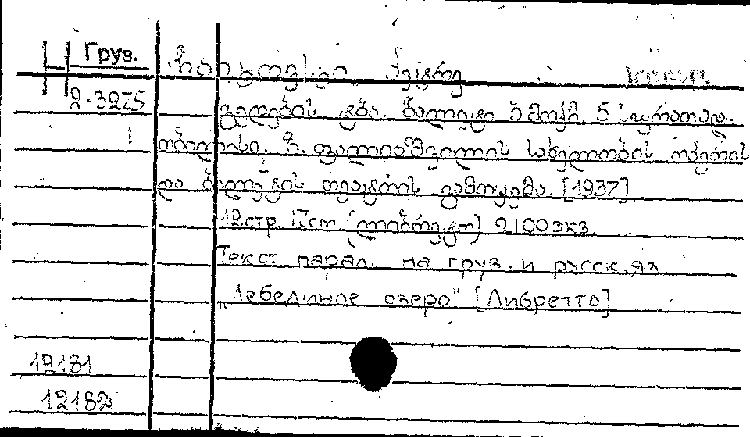 Н Груз. ჩაიკოვსკი, პეტრე
2-3275 გედების ტბა. ბალეტი 3 მოქმ. 5 სურათად.
თბილისი. ზ. ფალიაშვილის სახელობის ოპერის
და ბალეტის თეატრის გამოცემა. [1937]
12стр. 17см. (ლიბრეტო) 2100экз.
Текст парал. на груз. и русск. яз.
"Лебединое озеро" [Либретто]
12181
12182